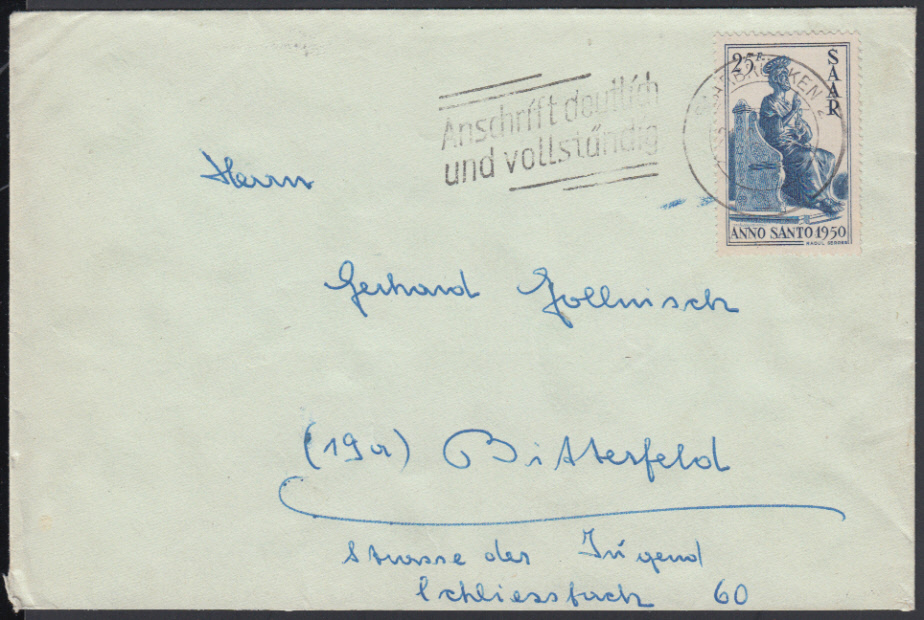 Anschrift deutlich
und vollständig
SAARBRÜCKEN 2
25F
SAAR
ANNO SANTO 1950
RAOUL SERRES
Herrn
Gerhard Gollnisch
(19a) Bitterfeld
Strasse der Jugend
Schliessfach 60